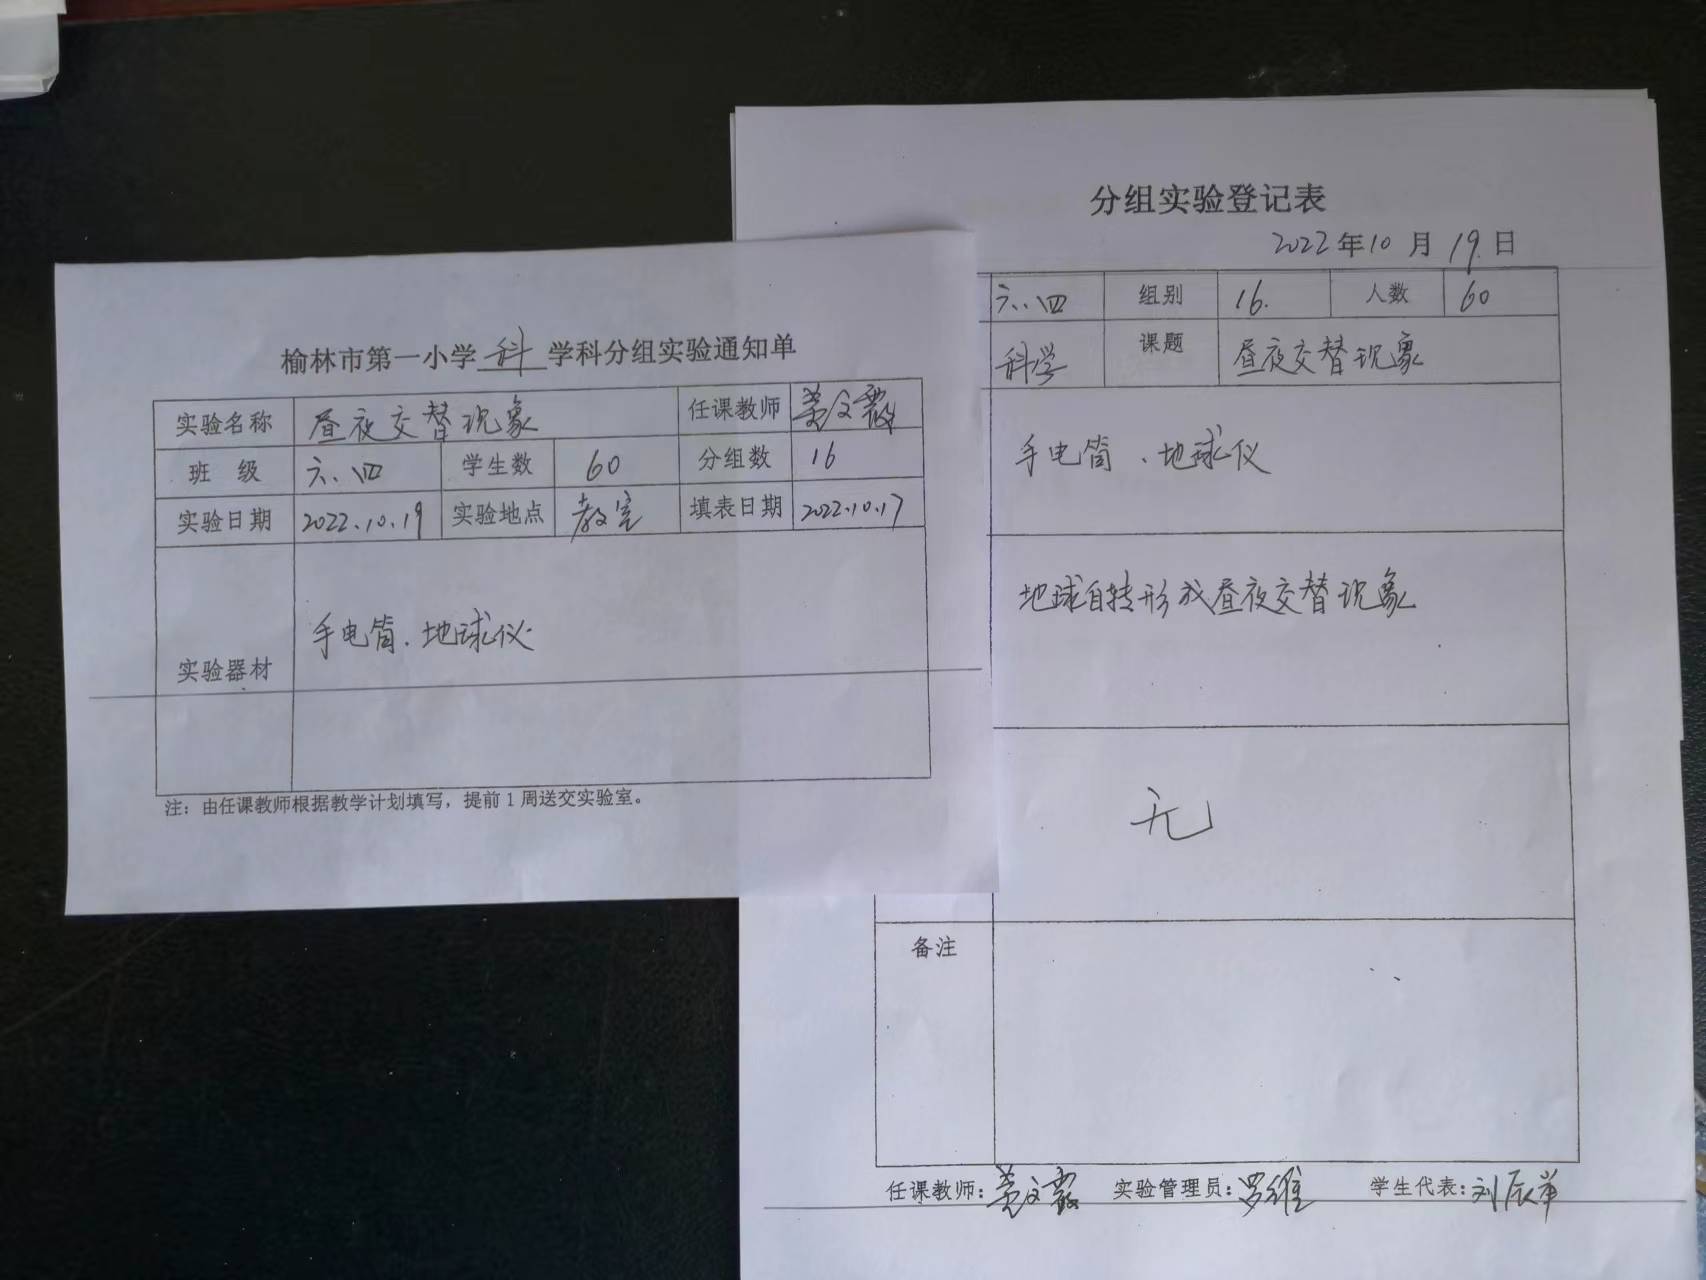 榆林市第一小学 科 学科分组实验通知单
实验名称 昼夜交替现象 任课教师
班 级 六.四 学生数 60 分组数 16
实验日期 2022.10.19 实验地点 教室 填表日期 2022.10.17
手电筒.地球仪.
实验器材
注：由任课教师根据教学计划填写，提前1周送交实验室。
分组实验登记表
2022年10月19日
六.四 组别 16. 人数 60
科学 课题 昼夜交替现象
手电筒、地球仪
地球自转形成昼夜交替现象
无
备注
任课教师: 实验管理员:罗维 学生代表:刘辰